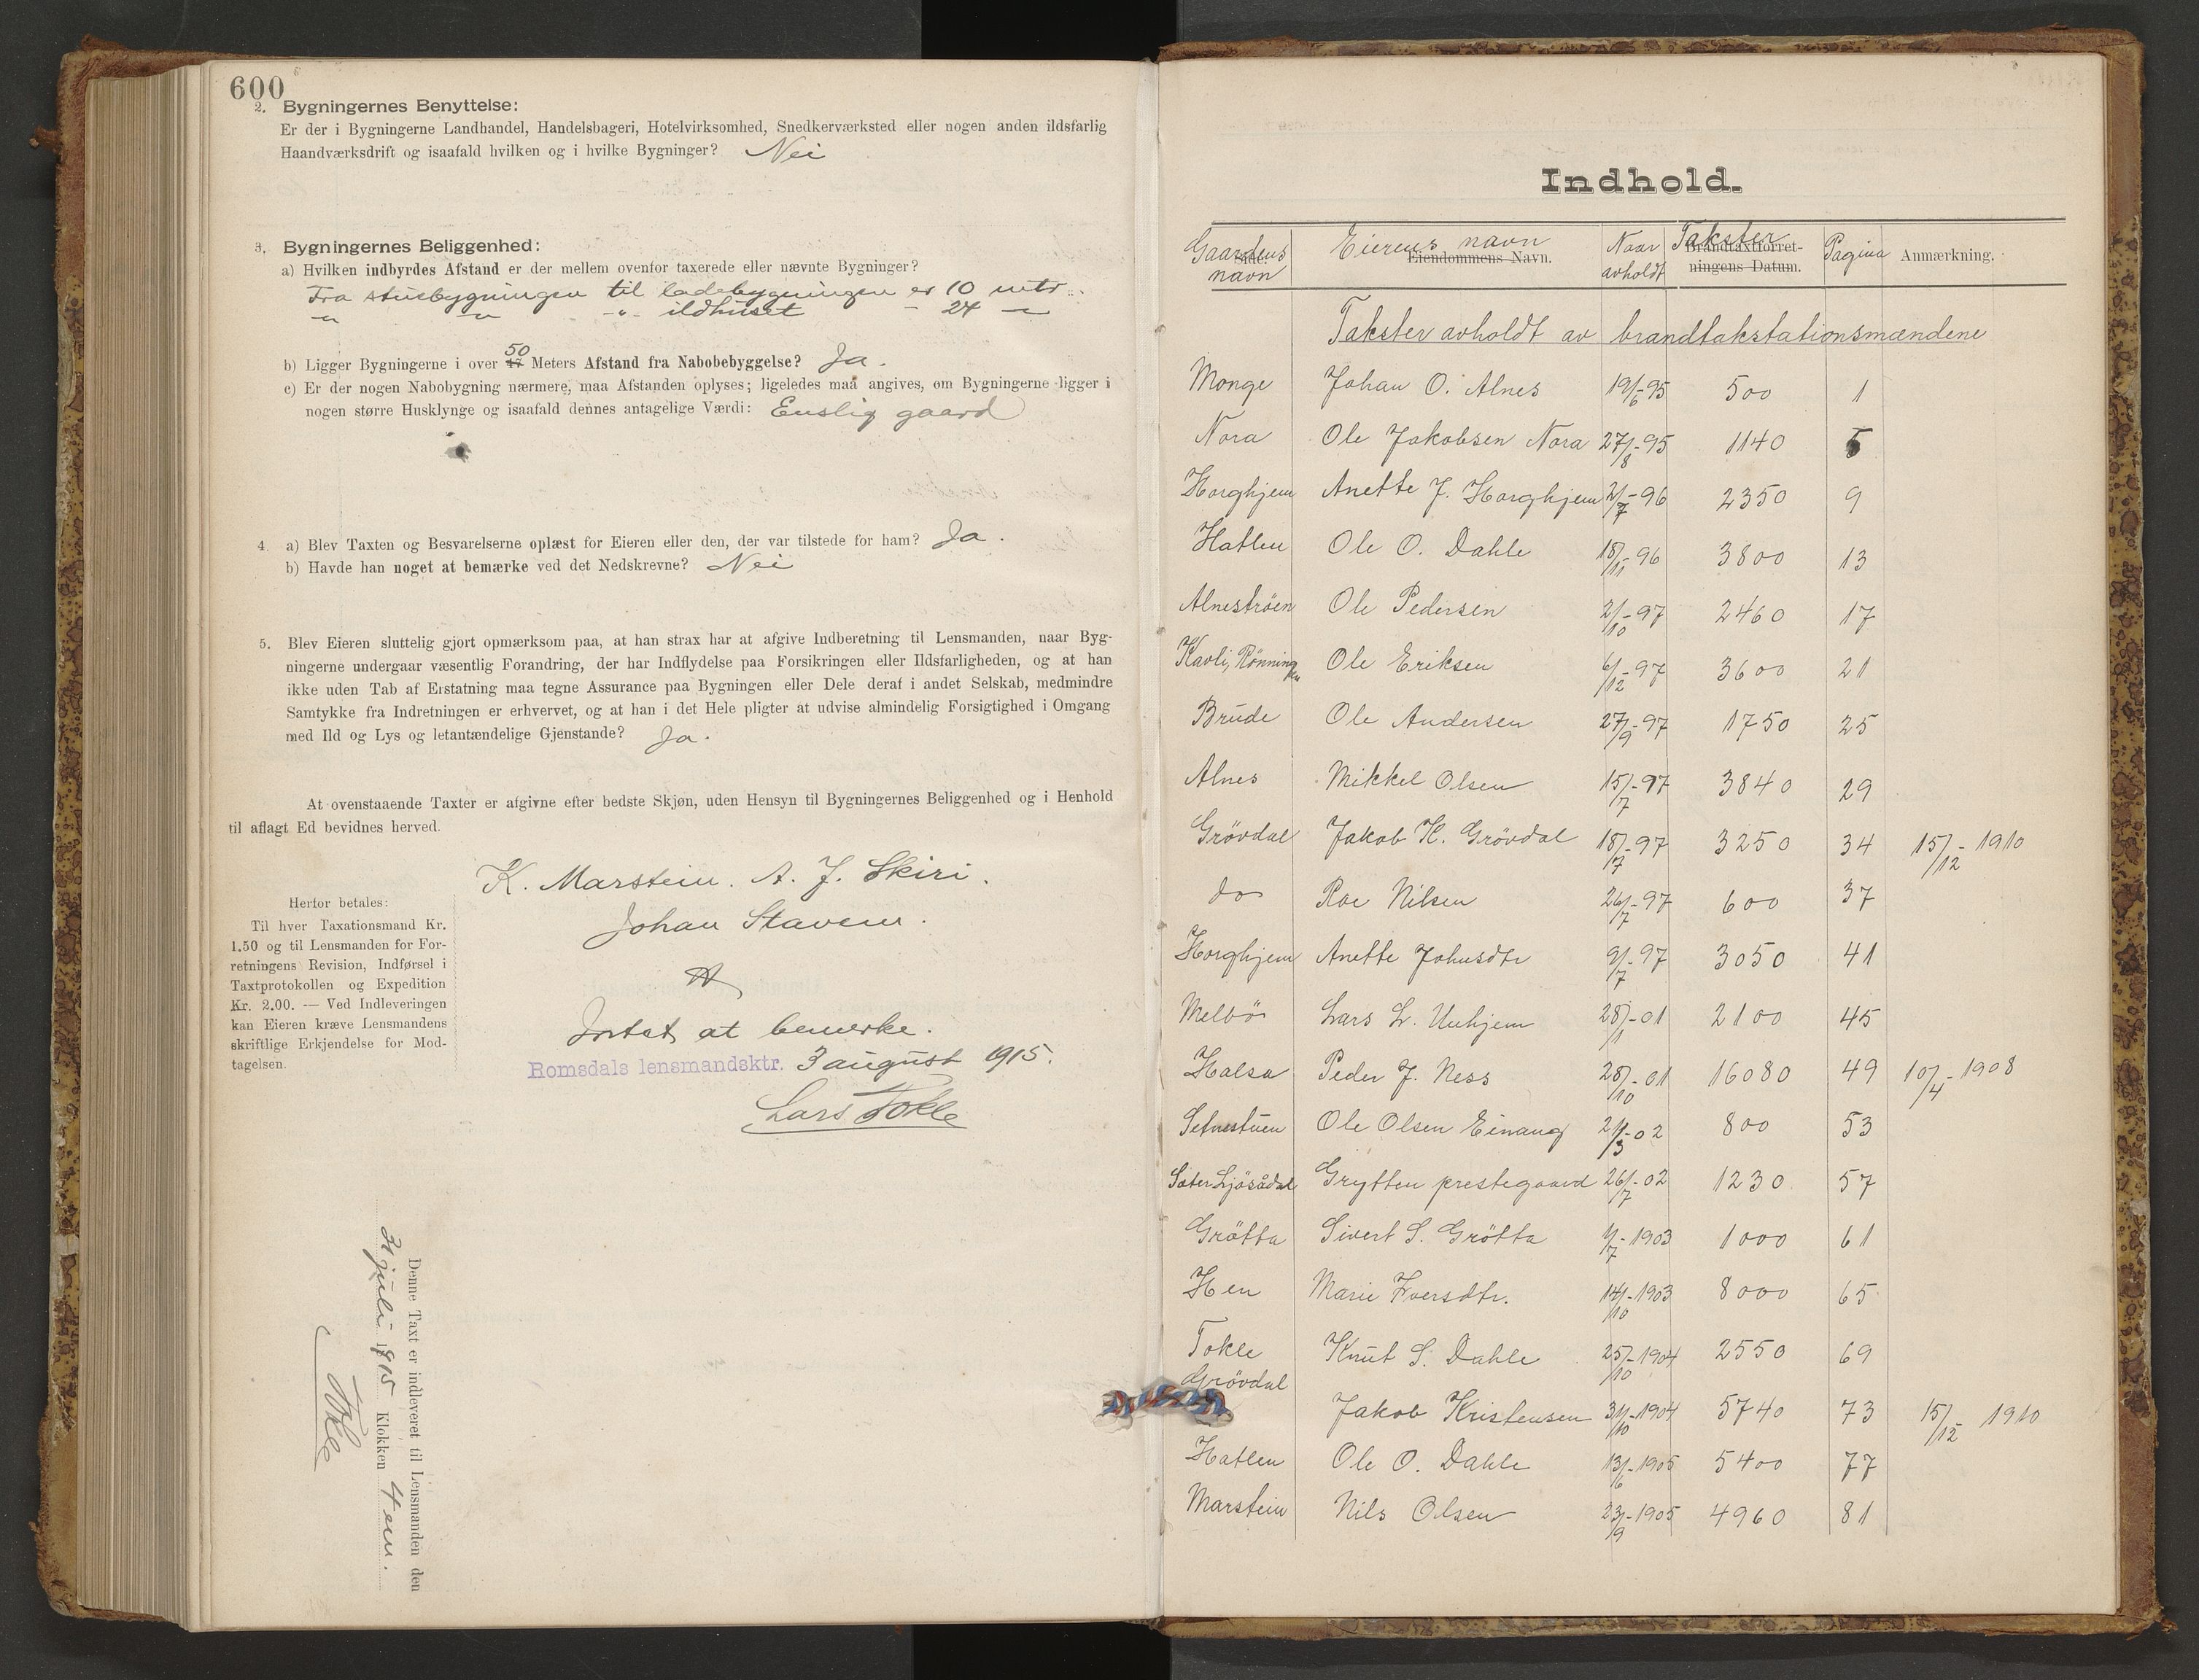 600
2. Bygningernes Benyttelse:
Er der i Bygningerne Landhandel, Handelsbageri, Hotelvirksomhed, Snedkerværksted eller nogen anden ildsfarlig
Haandværksdrift og isaafald hvilken og i hvilke Bygninger? Nei
3. Bygningernes Beliggenhed:
a) Hvilken indbyrdes Afstand er der mellem ovenfor taxerede eller nævnte Bygninger?
Fra stuebygningen til ladebygningen er 10 mtr.
" " -"- ildhuset - 24 "
b) Ligger Bygningerne i over 50 Meters Afstand fra Nabobebyggelse? Ja.
c) Er der nogen Nabobygning nærmere, maa Afstanden oplyses; ligeledes maa angives, om Bygningerne ligger i
nogen større Husklynge og isaafald dennes antagelige Værdi: Enslig gaard
4. a) Blev Taxten og Besvarelserne oplæst for Eieren eller den, der var tilstede for ham? Ja.
b) Havde han noget at bemærke ved det Nedskrevne? Nei
5. Blev Eieren sluttelig gjort opmærksom paa, at han strax har at afgive Indberetning til Lensmanden, naar Byg-
ningerne undergaar væsentlig Forandring, der har Indflydelse paa Forsikringen eller Ildsfarligheden, og at han
ikke uden Tab af Erstatning maa tegne Assurance paa Bygningen eller Dele deraf i andet Selskab, medmindre
Samtykke fra Indretningen er erhvervet, og at han i det Hele pligter at udvise almindelig Forsigtighed i Omgang
med Ild og Lys og letantændelige Gjenstande? Ja.
At ovenstaaende Taxter er afgivne efter bedste Skjøn, uden Hensyn til Bygningernes Beliggenhed og i Henhold
til aflagt Ed bevidnes herved.
K. Marstein. A. J. Skiri.
Johan Stavem.
Intet at bemerke.
Romsdals lensmandsktr. 3 august 1915.
Lars Tokle
Herfor betales:
Til hver Taxationsmand Kr.
1.50 og til Lensmanden for For-
retningens Revision, Indførsel i
Taxtprotokollen og Expedition
Kr. 2.00. — Ved Indleveringen
kan Eieren kræve Lensmandens
skriftlige Erkjendelse for Mod-
tagelsen.
Denne Taxt er indleveret til Lensmanden den
31 juli 1915 Klokken 4 em.
Tokle
Indhold.
Gaardens navn Eierens navn Eiendommens Navn. Naar avholdt Takster Brandtaxtforret-ningens Datum. Pagina Anmærkning.
Takster avholdt av brandtakstationsmændene
Monge Johan O. Alnes 19/6-95 500 1
Nora Ole Jakobsen Nora 27/8-95 1140 5
Horghjem Anette J. Horghjem 2/7-96 2350 9
Hatlen Ole O. Dahle 18/11-96 3800 13
Alneströen Ole Pedersen 2/10-97 2460 17
Kavli, Rönningen Ole Eriksen 6/12-97 3600 21
Brude Ole Andersen 27/9-97 1750 25
Alnes Mikkel Olsen 15/7-97 3840 29
Grövdal Jakob K. Grövdal 18/7-97 3250 34 15/12-1910
do Roe Nilsen 26/7-97 600 37
Horghjem Anette Johnsdtr 9/7-97 3050 41
Melbö Lars L. Unhjem 28/1-01 2100 45
Halsa Peder J. Ness 28/10-01 16080 49 10/4-1908
Setnestuen Ole Olsen Einang 21/3-02 800 53
Sæter Ljösådal Grytten prestegaard 26/7-02 1230 57
Grötta Sivert S. Grötta 1/7-1903 1000 61
Hen Marie Iversdtr. 14/10-1903 8000 65
Tokle Knut S. Dahle 25/10-1904 2550 69
Grövdal
Jakob Kristensen 31/10-1904 5740 73 15/12-1910
Hatlen Ole O. Dahle 13/6-1905 5400 77
Marstein Nils Olsen 23/9-1905 4960 81